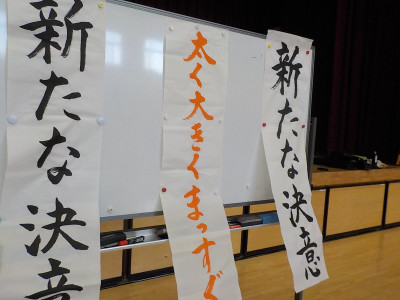 新たな決意
太く大きくまっすぐ
新たな決意